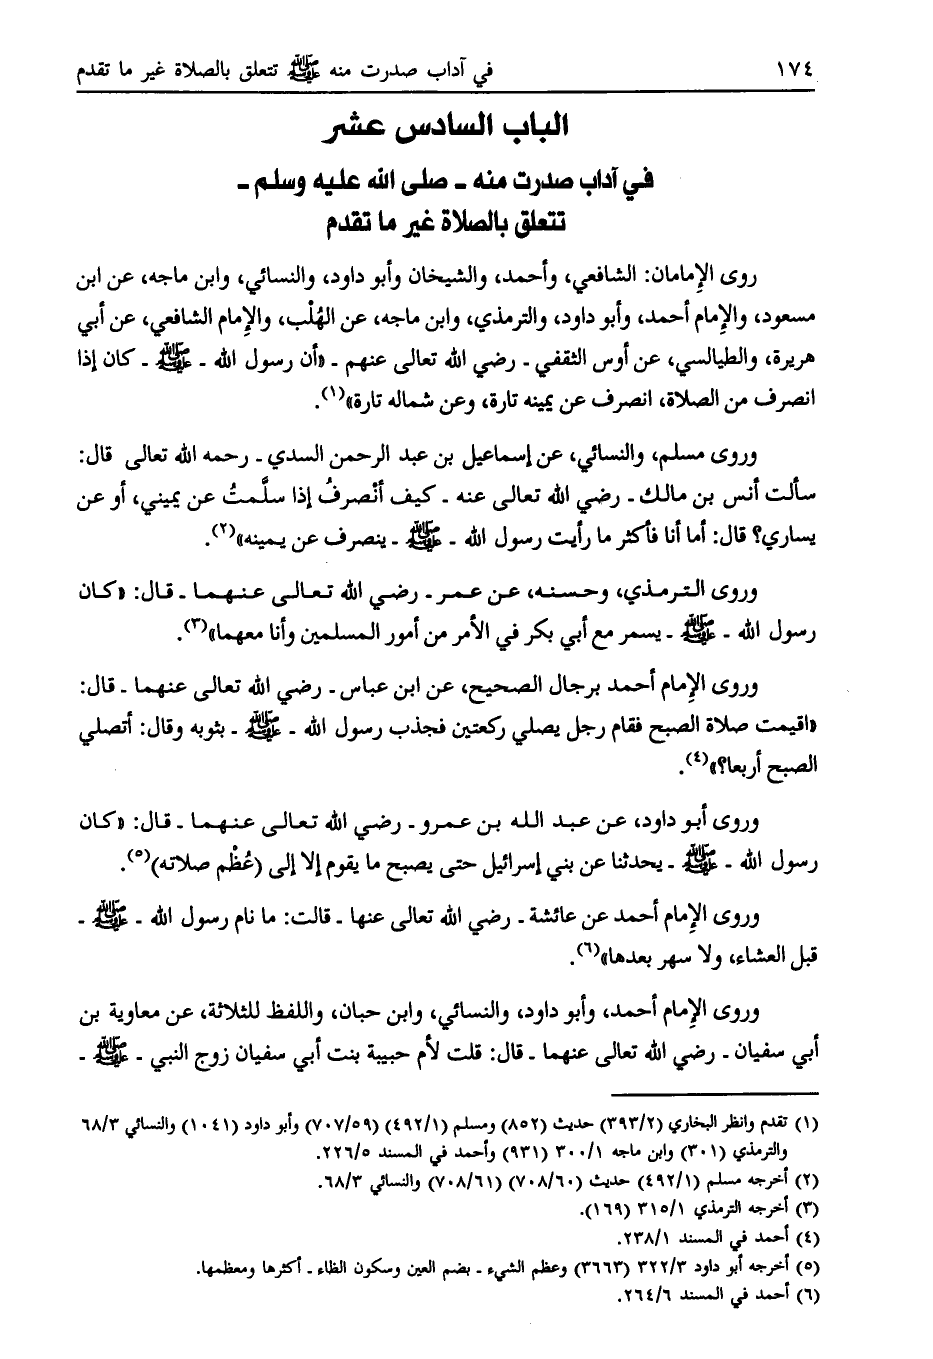 ١٧٤ في آداب صدرت منه ﷺ تتعلق بالصلاة غير ما تقدم
الباب السادس عشر
في آداب صدرت منه ـ صلى الله عليه وسلم ـ
تتعلق بالصلاة غير ما تقدم
روى الإمامان: الشافعي، وأحمد، والشيخان وأبو داود، والنسائي، وابن ماجه، عن ابن
مسعود، والإمام أحمد، وأبو داود، والترمذي، وابن ماجه، عن الهُلْب، والإمام الشافعي، عن أبي
هريرة، والطيالسي، عن أوس الثقفي ـ رضي الله تعالى عنهم ـ «أن رسول الله ـ ﷺ ـ كان إذا
انصرف من الصلاة، انصرف عن يمينه تارة، وعن شماله تارة»(١).
وروى مسلم، والنسائي، عن إسماعيل بن عبد الرحمن السدي ـ رحمه الله تعالى قال:
سألت أنس بن مالك ـ رضي الله تعالى عنه ـ كيف أنْصرفُ إذا سلَّمتُ عن يميني، أو عن
يساري؟ قال: أما أنا فأكثر ما رأيت رسول الله ـ ﷺ ـ ينصرف عن يمينه»(٢).
وروى الترمذي، وحسنه، عن عمر ـ رضي الله تعالى عنهما ـ قال: «كان
رسول الله ـ ﷺ ـ يسمر مع أبي بكر في الأمر من أمور المسلمين وأنا معهما»(٣).
وروى الإمام أحمد برجال الصحيح، عن ابن عباس ـ رضي الله تعالى عنهما ـ قال:
«اقيمت صلاة الصبح فقام رجل يصلي ركعتين فجذب رسول الله ـ ﷺ ـ بثوبه وقال: أتصلي
الصبح أربعا؟»(٤).
وروى أبو داود، عن عبد الله بن عمرو ـ رضي الله تعالى عنهما ـ قال: «كان
رسول الله ـ ﷺ ـ يحدثنا عن بني إسرائيل حتى يصبح ما يقوم إلا إلى (عُظْم صلاته)(٥).
وروى الإمام أحمد عن عائشة ـ رضي الله تعالى عنها ـ قالت: ما نام رسول الله ـ ﷺ ـ
قبل العشاء، ولا سهر بعدها»(٦).
وروى الإمام أحمد، وأبو داود، والنسائي، وابن حبان، واللفظ للثلاثة، عن معاوية بن
أبي سفيان ـ رضي الله تعالى عنهما ـ قال: قلت لأم حبيبة بنت أبي سفيان زوج النبي ـ ﷺ ـ
(١) تقدم وانظر البخاري (٣٩٣/٢) حديث (٨٥٢) ومسلم (٤٩٢/١) (٧٠٧/٥٩) وأبو داود (١٠٤١) والنسائي ٦٨/٣
والترمذي (٣٠١) وابن ماجه ٣٠٠/١ (٩٣١) وأحمد في المسند ٢٢٦/٥.
(٢) أخرجه مسلم (٤٩٢/١) حديث (٧٠٨/٦٠) (٧٠٨/٦١) والنسائي ٦٨/٣.
(٣) أخرجه الترمذي ٣١٥/١ (١٦٩).
(٤) أحمد في المسند ٢٣٨/١.
(٥) أخرجه أبو داود ٣٢٢/٣ (٣٦٦٣) وعظم الشيء ـ بضم العين وسكون الظاء ـ أكثرها ومعظمها.
(٦) أحمد في المسند ٢٦٤/٦.